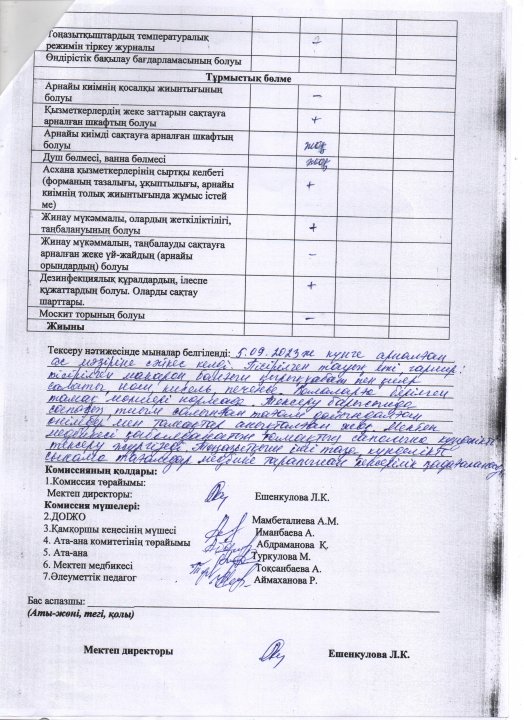 Тоңазытқыштардың температуралық
режимін тіркеу журналы
Өндірістік бақылау бағдарламасының болуы
Тұрмыстық бөлме
Арнайы киімнің қосалқы жиынтығының
болуы –
Қызметкерлердің жеке заттарын сақтауға
арналған шкафтың болуы +
Арнайы киімді сақтауға арналған шкафтың
болуы жоқ
Душ бөлмесі, ванна бөлмесі жоқ
Асхана қызметкерлерінің сыртқы келбеті
(форманың тазалығы, ұқыптылығы, арнайы
киімнің толық жиынтығында жұмыс істей
ме) +
Жинау мүкәммалы, олардың жеткіліктілігі,
таңбалануының болуы +
Жинау мүкәммалын, таңбалауды сақтауға
арналған жеке үй-жайдың (арнайы
орындардың) болуы –
Дезинфекциялық құралдардың, ілеспе
құжаттардың болуы. Оларды сақтау
шарттары. +
Москит торының болуы –
Жиыны
Тексеру нәтижесінде мыналар белгіленді: 5.09.2023ж күнге арналған
ас мәзіріне сәйкес келді. Пісірілген тағам екі гарнир:
пісірілген макарон
салаты нан, кисель, печенье. Балаларға берілген
тамақ мөлшері нормада. Тексеру барысында
тағам
өнімдер мен тамақтар анықталған жоқ. Мектеп
медбикесі тамақтың сапасына күнделікті
тексеру жүргізеді. таза, күнделікті
Комиссияның қолдары:
1.Комиссия төрайымы:
Мектеп директоры: Ешенкулова Л.К.
Комиссия мүшелері:
2.ДОІЖО Мамбеталиева А.М.
3.Қамқоршы кеңесінің мүшесі Иманбаева А.
4. Ата-ана комитетінің төрайымы Абдраманова Қ.
5. Ата-ана Туркулова М.
6. Мектеп медбикесі Тоқсанбаева А.
7.Әлеуметтік педагог Аймаханова Р.
Бас аспазшы:
(Аты-жөні, тегі, қолы)
Мектеп директоры Ешенкулова Л.К.